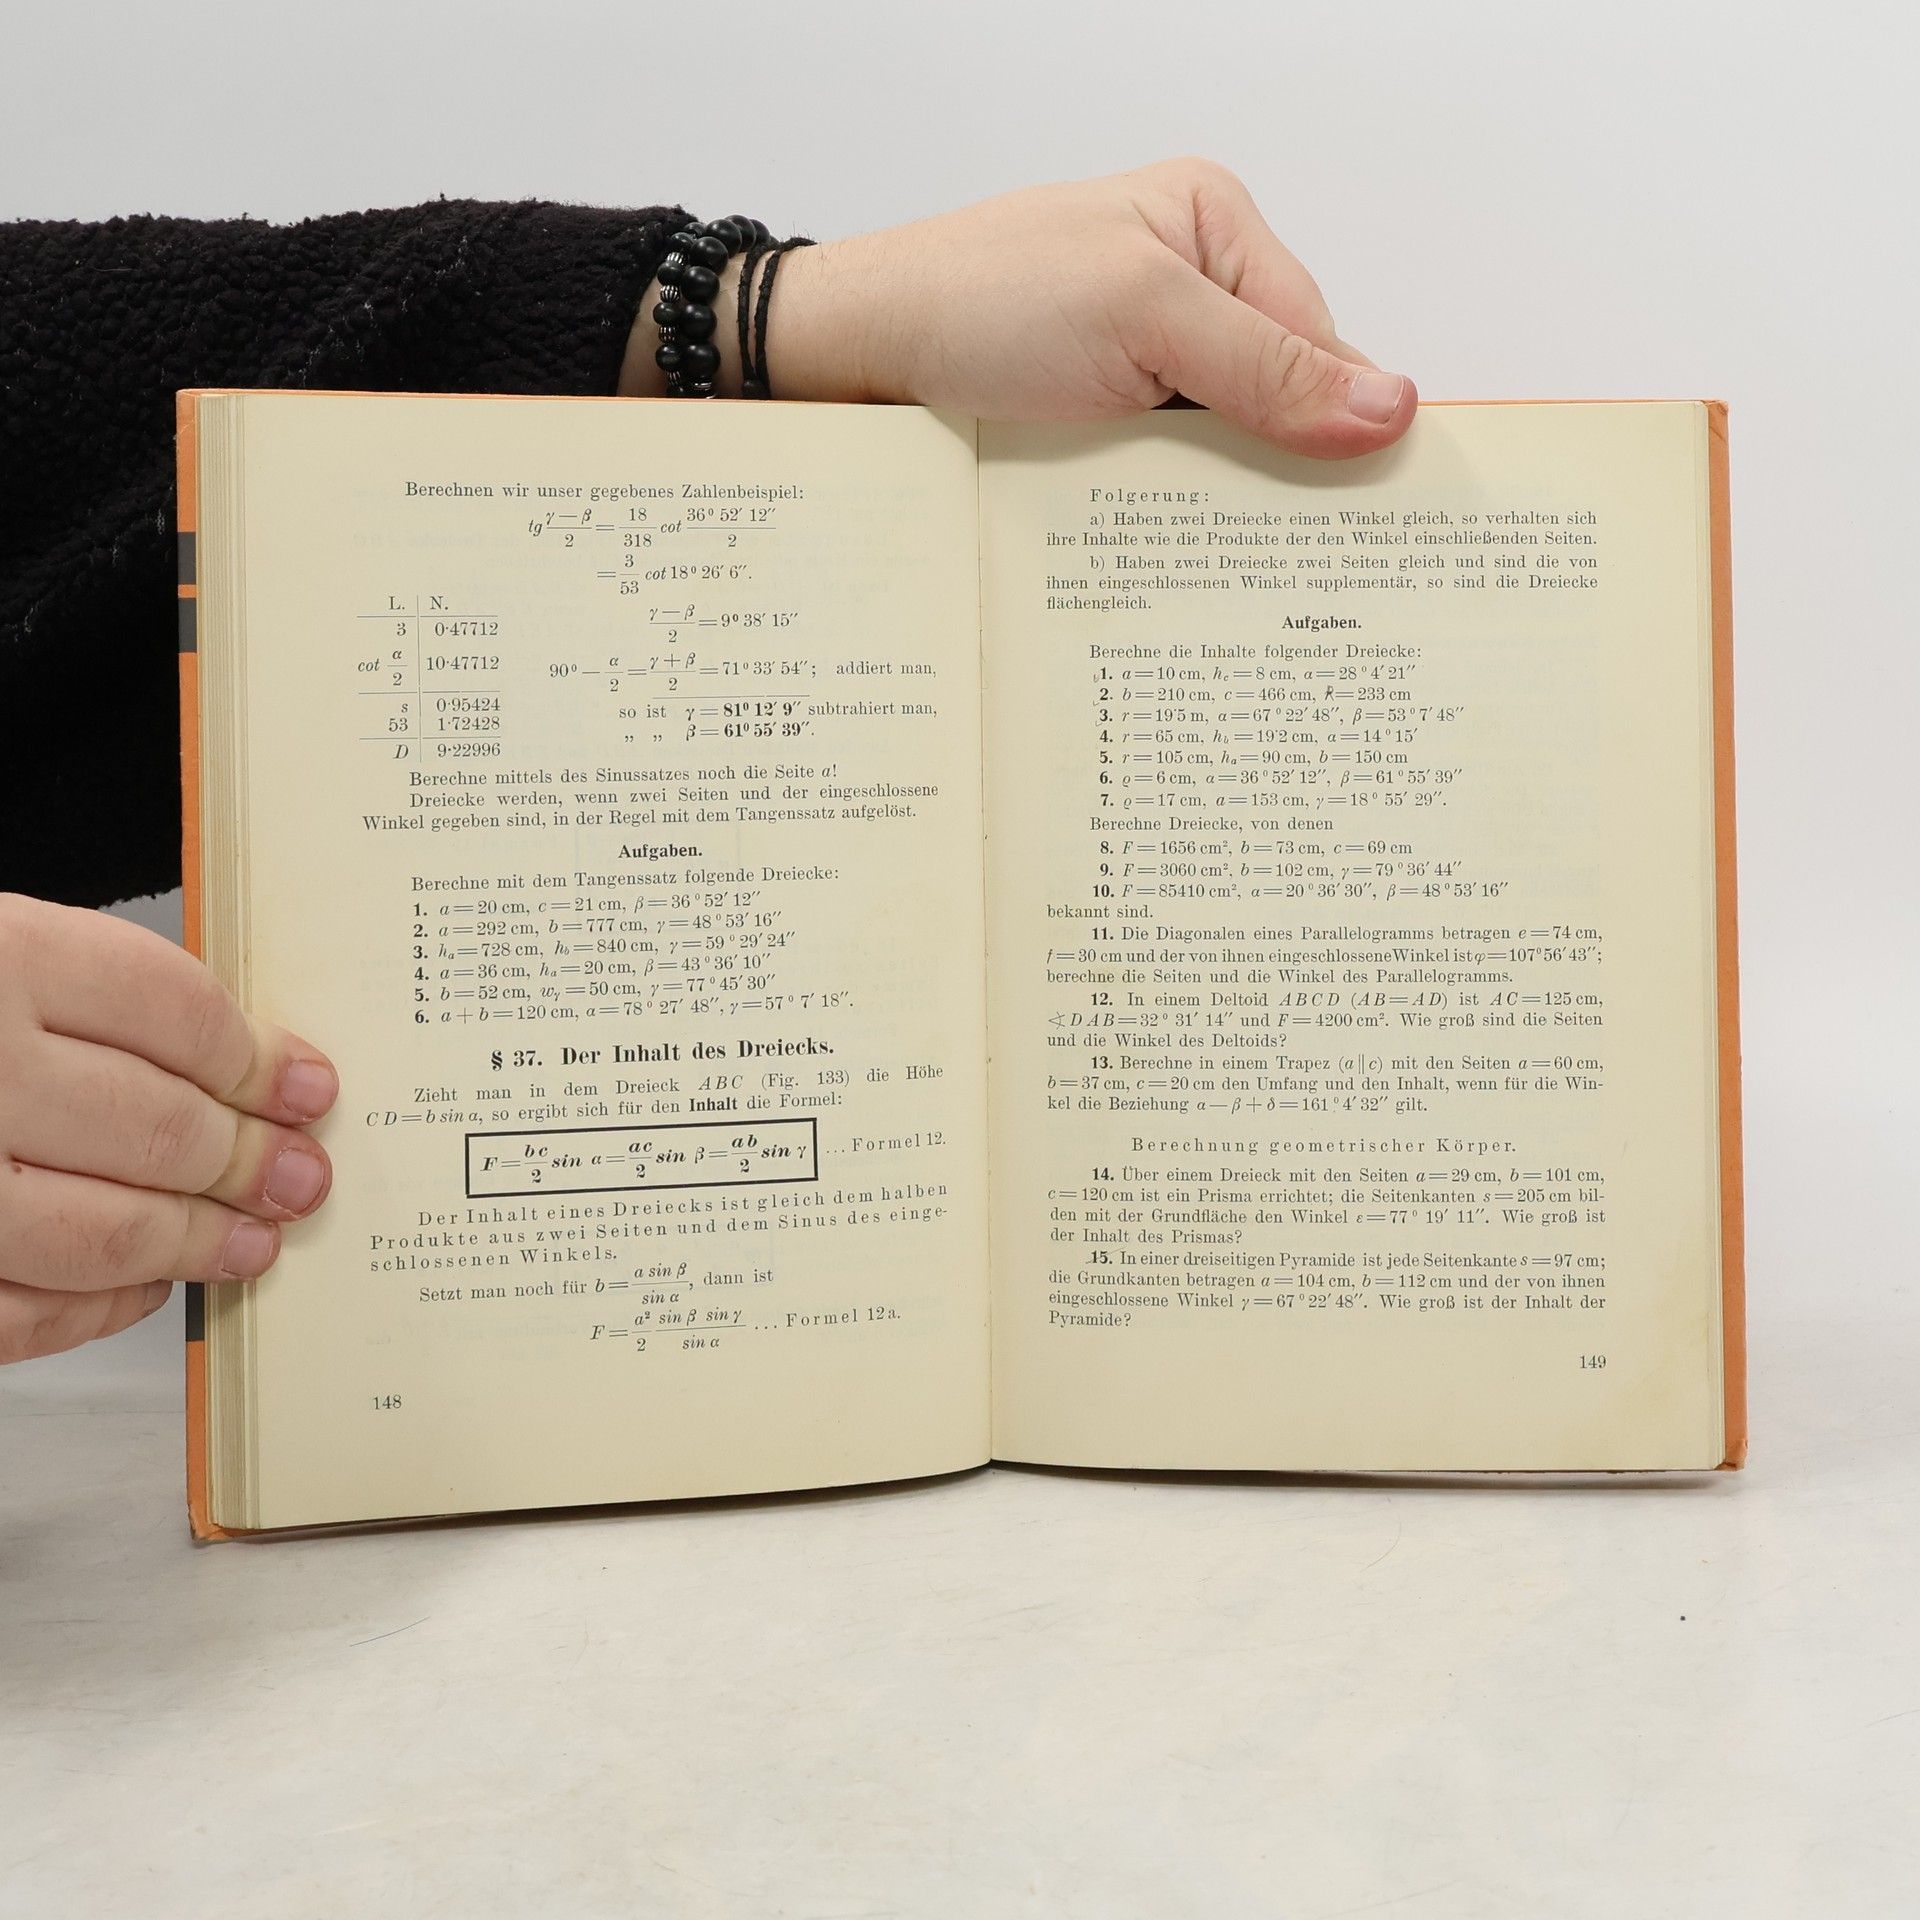 Berechnen wir unser gegebenes Zahlenbeispiel:
tg (γ — β)/2 = 18/318 cot (36° 52′ 12″)/2
= 3/53 cot 18° 26′ 6″.
L. | N.
3 | 0·47712
(γ — β)/2 = 9° 38′ 15″
cot α/2 | 10·47712
90° — α/2 = (γ + β)/2 = 71° 33′ 54″; addiert man,
s | 0·95424
so ist γ = 81° 12′ 9″ subtrahiert man,
53 | 1·72428
„ „ β = 61° 55′ 39″.
D | 9·22996
Berechne mittels des Sinussatzes noch die Seite a!
Dreiecke werden, wenn zwei Seiten und der eingeschlossene
Winkel gegeben sind, in der Regel mit dem Tangenssatz aufgelöst.
Aufgaben.
Berechne mit dem Tangenssatz folgende Dreiecke:
1. a = 20 cm, c = 21 cm, β = 36° 52′ 12″
2. a = 292 cm, b = 777 cm, γ = 48° 53′ 16″
3. hₐ = 728 cm, h_b = 840 cm, γ = 59° 29′ 24″
4. a = 36 cm, hₐ = 20 cm, β = 43° 36′ 10″
5. b = 52 cm, w_γ = 50 cm, γ = 77° 45′ 30″
6. a + b = 120 cm, α = 78° 27′ 48″, γ = 57° 7′ 18″.
§ 37. Der Inhalt des Dreiecks.
Zieht man in dem Dreieck ABC (Fig. 133) die Höhe
CD = b sin α, so ergibt sich für den Inhalt die Formel:
F = bc/2 sin α = ac/2 sin β = ab/2 sin γ ... Formel 12.
Der Inhalt eines Dreiecks ist gleich dem halben
Produkte aus zwei Seiten und dem Sinus des einge-
schlossenen Winkels.
Setzt man noch für b = a sin β / sin α, dann ist
F = a²/2 sin β sin γ / sin α ... Formel 12a.
148
Folgerung:
a) Haben zwei Dreiecke einen Winkel gleich, so verhalten sich
ihre Inhalte wie die Produkte der den Winkel einschließenden Seiten.
b) Haben zwei Dreiecke zwei Seiten gleich und sind die von
ihnen eingeschlossenen Winkel supplementär, so sind die Dreiecke
flächengleich.
Aufgaben.
Berechne die Inhalte folgender Dreiecke:
1. a = 10 cm, h_c = 8 cm, α = 28° 4′ 21″
2. b = 210 cm, c = 466 cm, R = 233 cm
3. r = 19·5 m, α = 67° 22′ 48″, β = 53° 7′ 48″
4. r = 65 cm, h_b = 19·2 cm, α = 14° 15′
5. r = 105 cm, hₐ = 90 cm, b = 150 cm
6. ϱ = 6 cm, α = 36° 52′ 12″, β = 61° 55′ 39″
7. ϱ = 17 cm, a = 153 cm, γ = 18° 55′ 29″.
Berechne Dreiecke, von denen
8. F = 1656 cm², b = 73 cm, c = 69 cm
9. F = 3060 cm², b = 102 cm, γ = 79° 36′ 44″
10. F = 85410 cm², α = 20° 36′ 30″, β = 48° 53′ 16″
bekannt sind.
11. Die Diagonalen eines Parallelogramms betragen e = 74 cm,
f = 30 cm und der von ihnen eingeschlossene Winkel ist φ = 107° 56′ 43″;
berechne die Seiten und die Winkel des Parallelogramms.
12. In einem Deltoid ABCD (AB = AD) ist AC = 125 cm,
∢ DAB = 32° 31′ 14″ und F = 4200 cm². Wie groß sind die Seiten
und die Winkel des Deltoids?
13. Berechne in einem Trapez (a ∥ c) mit den Seiten a = 60 cm,
b = 37 cm, c = 20 cm den Umfang und den Inhalt, wenn für die Win-
kel die Beziehung α — β + δ = 161° 4′ 32″ gilt.
Berechnung geometrischer Körper.
14. Über einem Dreieck mit den Seiten a = 29 cm, b = 101 cm,
c = 120 cm ist ein Prisma errichtet; die Seitenkanten s = 205 cm bil-
den mit der Grundfläche den Winkel ε = 77° 19′ 11″. Wie groß ist
der Inhalt des Prismas?
15. In einer dreiseitigen Pyramide ist jede Seitenkante s = 97 cm;
die Grundkanten betragen a = 104 cm, b = 112 cm und der von ihnen
eingeschlossene Winkel γ = 67° 22′ 48″. Wie groß ist der Inhalt der
Pyramide?
149